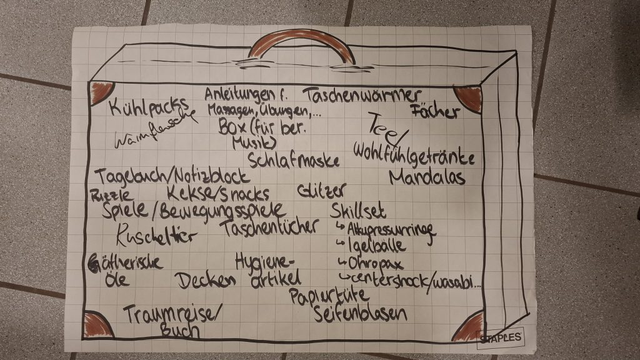 Kühlpacks
Anleitungen f.
Massagen, Übungen,...
Taschenwärmer
Fächer
Wärmflasche
Box (für ber.
Musik)
Tee/
Wohlfühlgetränke
Schlafmaske
Mandalas
Tagebuch/Notizblock
Puzzle
Kekse/Snacks
Glitzer
Spiele/Bewegungsspiele
Skillset
↳ Akupressurringe
↳ Igelbälle
↳ Ohropax
↳ Centershock/Wasabi...
Kuscheltier
Taschentücher
Ätherische
Öle
Decken
Hygiene-
artikel
Papiertüte
Seifenblasen
Traumreise/
Buch
STAPLES